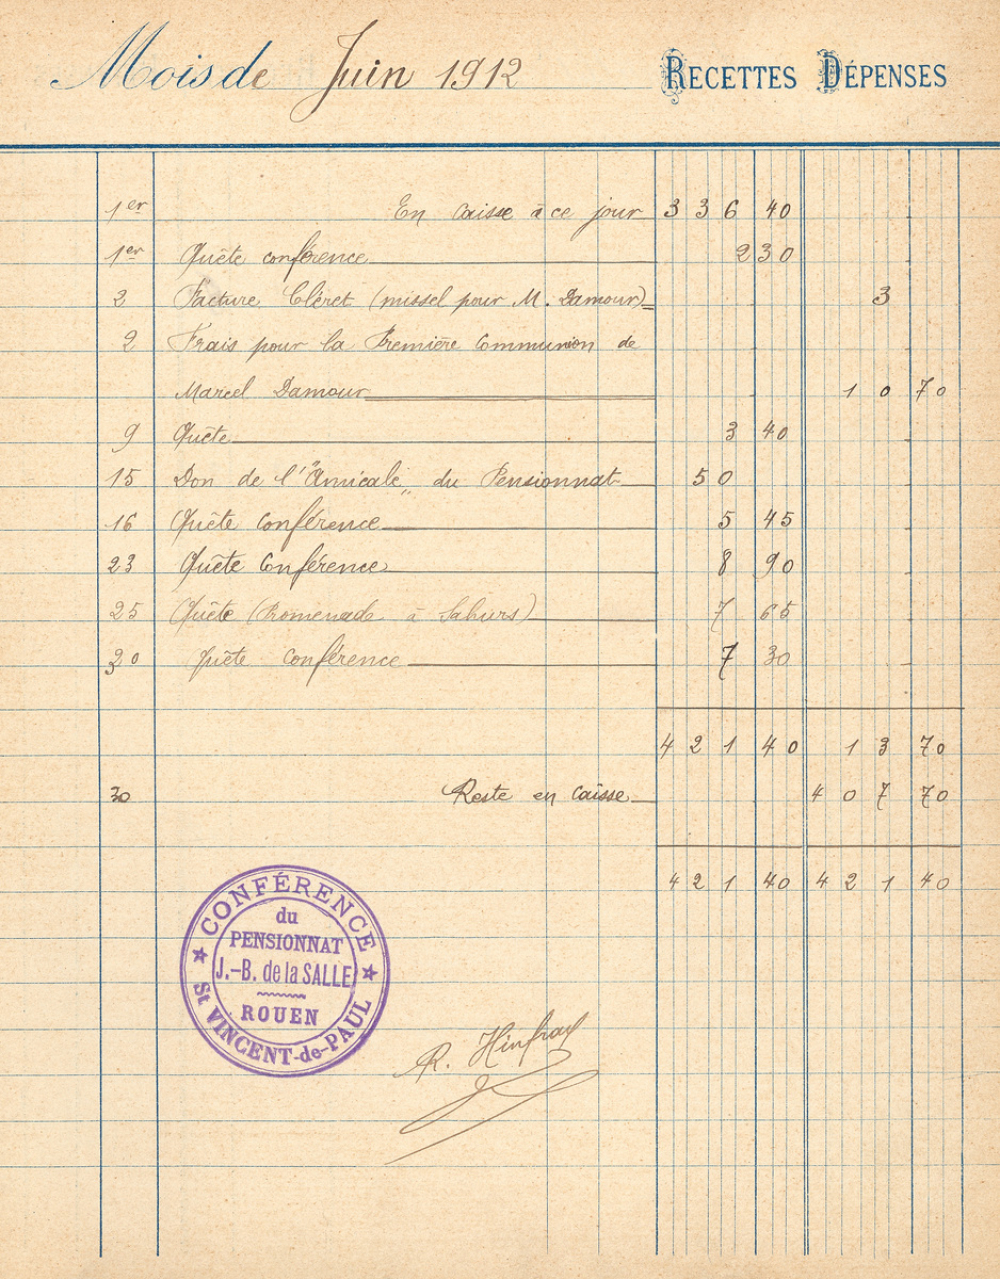 Mois de Juin 1912 RECETTES DÉPENSES
1er En caisse à ce jour 336 40
1er Quête conférence 2 30
2 Facture Cléret (missel pour M. Damour) 3
2 Frais pour la Première Communion de
Marcel Damour 10 70
9 Quête 3 40
15 Don de l'"Amicale" du Pensionnat 50
16 Quête Conférence 5 45
23 Quête Conférence 8 90
25 Quête (Promenade à Sahurs) 7 65
30 Quête conférence 7 30
421 40 13 70
30 Reste en caisse 407 70
421 40 421 40
CONFÉRENCE
du
PENSIONNAT
J.-B. de la SALLE
ROUEN
St VINCENT-de-PAUL
R. Hinfray